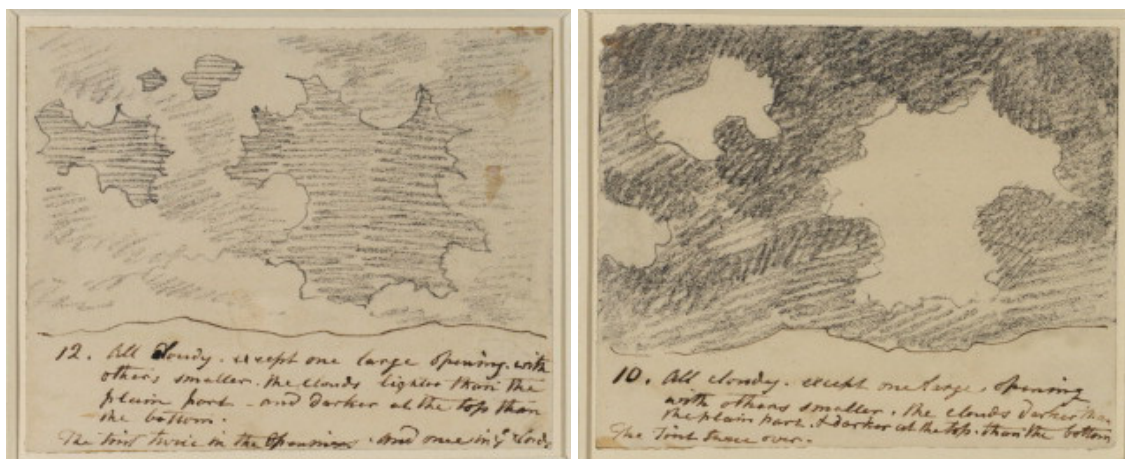 12. All Cloudy. except one large opening. with
others smaller. the clouds lighter than the
plain part - and darker at the top than
the bottom.
The Tint twice in the openings. and once in y^e clouds
10. All cloudy. except one large. opening
with others smaller. the clouds darker than
the plain part. & darker at the top. than the bottom
The Tint twice over.